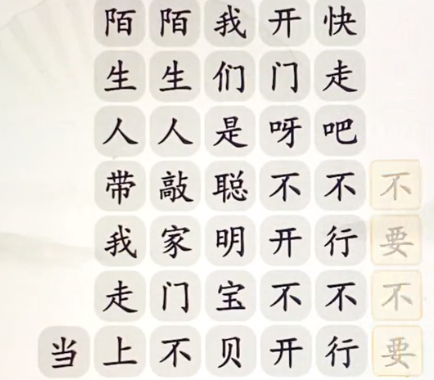 当
陌生人带我走上
陌生人敲家门不
我们是聪明宝贝
开门呀不开不开
快走吧不行不行
不要不要